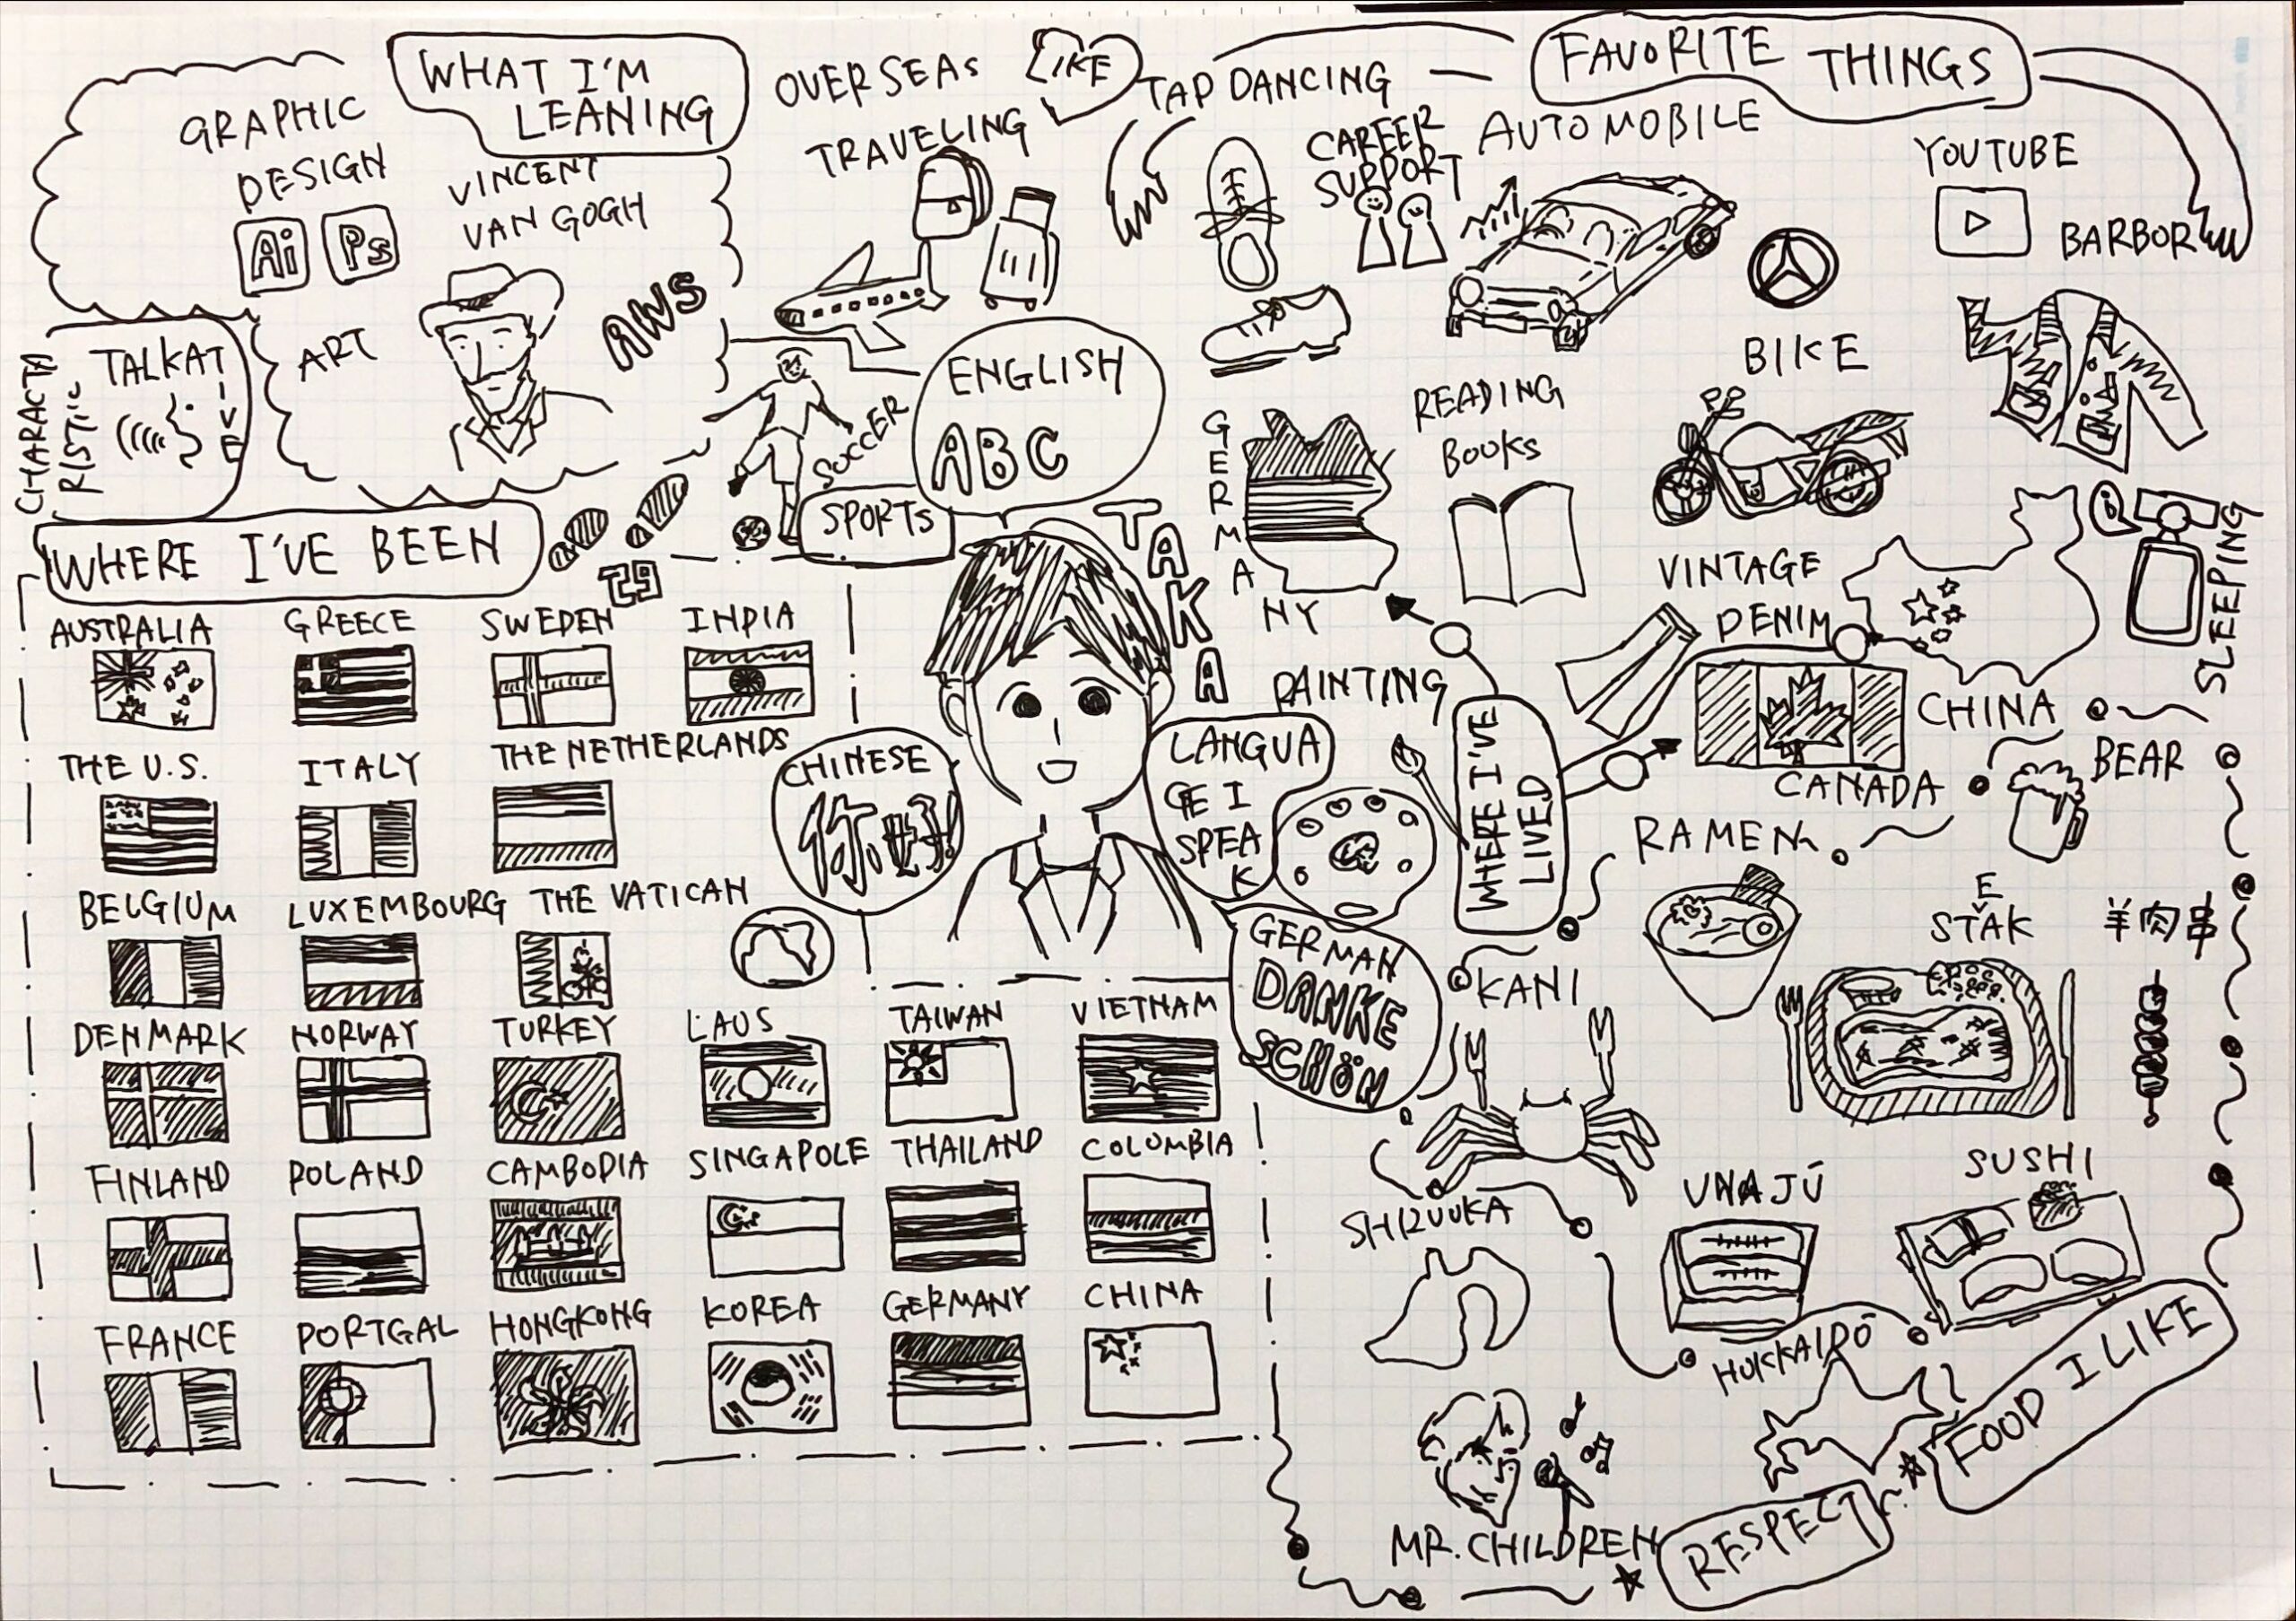 WHAT I'M
LEANING
GRAPHIC
DESIGN
Ai
Ps
VINCENT
VAN GOGH
ART
AWS
CHARACTA
RISTIC
TALKATIVE
OVERSEAS
TRAVELING
LIKE
TAP DANCING
CAREER
SUPPORT
FAVORITE THINGS
AUTOMOBILE
YOUTUBE
BARBOR
BIKE
READING
BOOKS
VINTAGE
DENIM
SLEEPING
PAINTING
SOCCER
SPORTS
ENGLISH
ABC
TAKA
CHINESE
你好!
LANGUA
GE I
SPEA
K
GERMAN
DANKE
SCHÖN
WHERE I'VE
LIVED
GERMANY
CHINA
CANADA
WHERE I'VE BEEN
29
AUSTRALIA
GREECE
SWEDEN
INDIA
THE U.S.
ITALY
THE NETHERLANDS
BELGIUM
LUXEMBOURG
THE VATICAN
DENMARK
NORWAY
TURKEY
LAUS
TAIWAN
VIETNAM
FINLAND
POLAND
CAMBODIA
SINGAPOLE
THAILAND
COLUMBIA
FRANCE
PORTGAL
HONGKONG
KOREA
GERMANY
CHINA
BEAR
RAMEN
STEAK
羊肉串
KANI
UNAJŪ
SUSHI
SHIZUUKA
HOKKAIDŌ
FOOD I LIKE
MR. CHILDREN
RESPECT